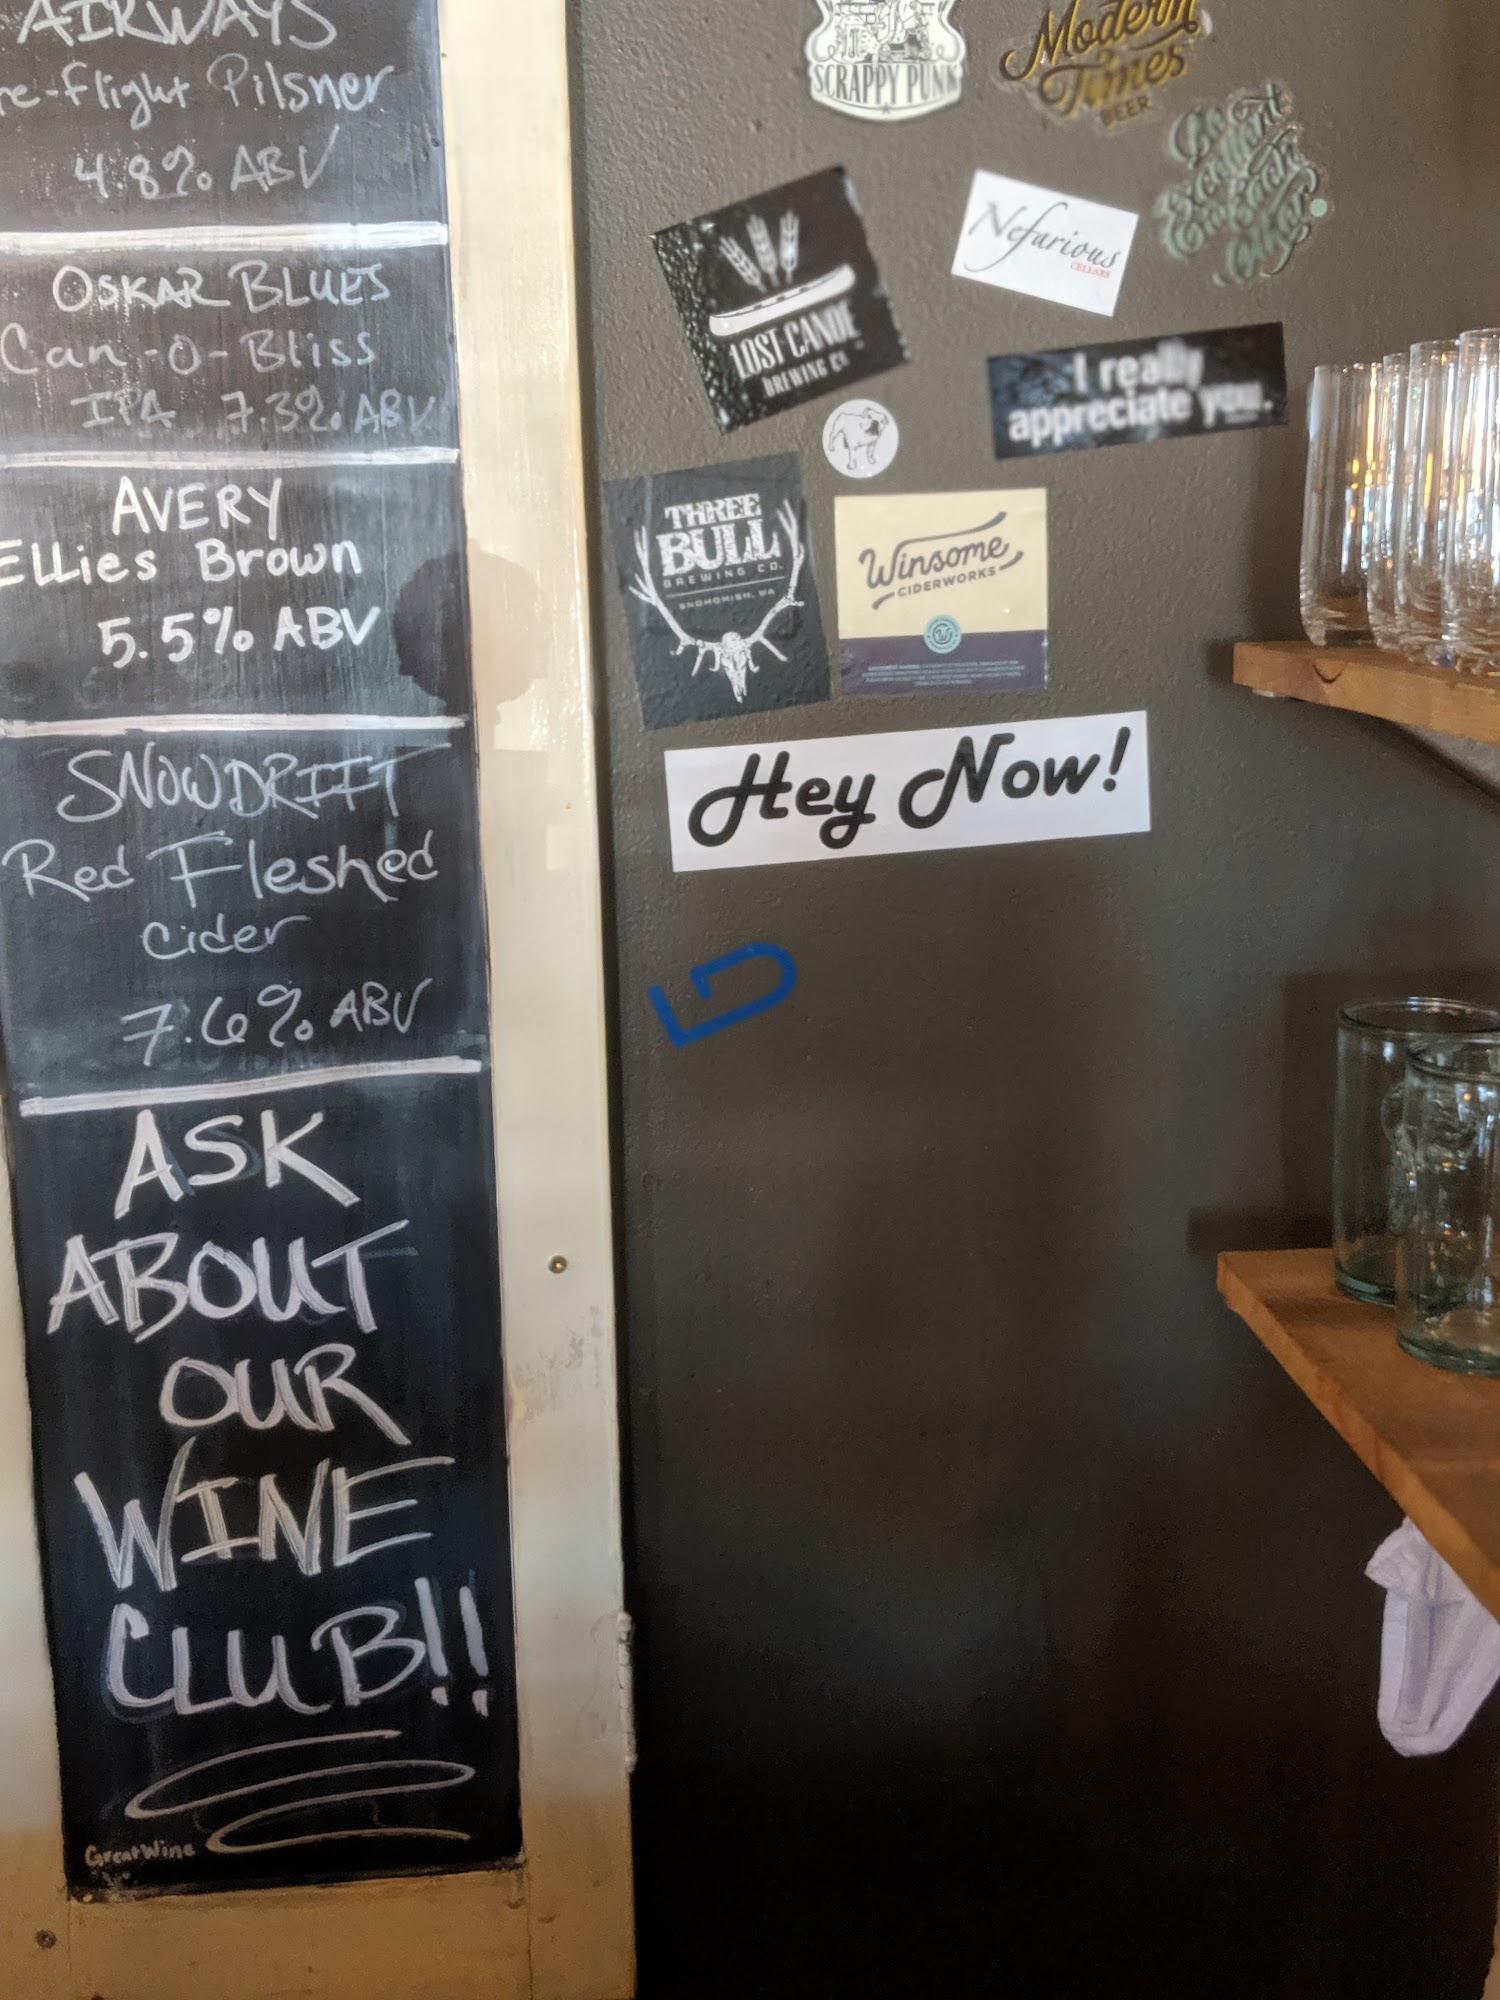 AIRWAYS
re-Flight Pilsner
4.8% ABV
OSKAR BLUES
Can-O-Bliss
IPA 7.3% ABV
AVERY
Ellies Brown
5.5% ABV
SNOWDRIFT
Red Fleshed
Cider
7.6% ABV
ASK
ABOUT
OUR
WINE
CLUB!!
Great Wine
SCRAPPY PUNK
Modern
Times
BEER
Be
Excellent
to Each
Other
Nefarious
CELLARS
LOST CANOE
BREWING CO
I really
appreciate you.
THREE
BULL
BREWING CO.
SNOHOMISH, WA
Winsome
CIDERWORKS
Hey Now!